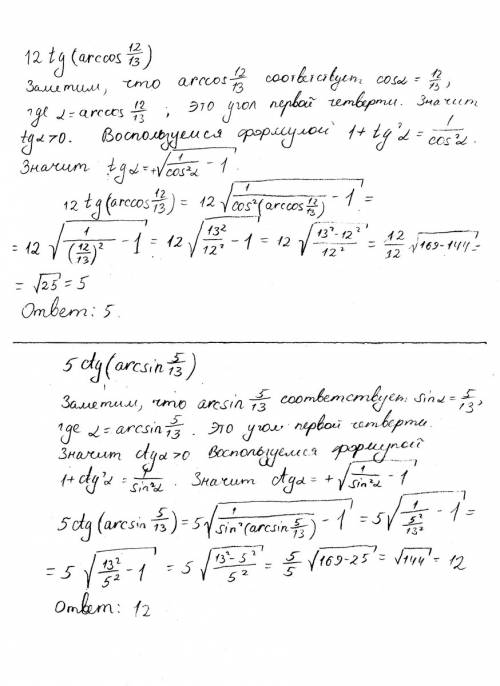 12 tg (arccos 12/13)
Заметим, что arccos 12/13 соответствует cosα = 12/13,
где α = arccos 12/13 ; это угол первой четверти. Значит
tgα > 0. Воспользуемся формулой 1 + tg²α = 1/cos²α.
Значит tgα = +√(1/cos²α − 1)
12 tg(arccos 12/13) = 12 √(1/cos²(arccos 12/13) − 1) =
= 12 √(1/(12/13)² − 1) = 12 √(13²/12² − 1) = 12 √((13² − 12²)/12²) = 12/12 · √(169−144) =
= √25 = 5
Ответ: 5.
5 ctg (arcsin 5/13)
Заметим, что arcsin 5/13 соответствует: sinα = 5/13,
где α = arcsin 5/13. Это угол первой четверти.
Значит ctgα > 0 Воспользуемся формулой
1 + ctg²α = 1/sin²α. Значит ctgα = +√(1/sin²α − 1)
5 ctg (arcsin 5/13) = 5 √(1/sin²(arcsin 5/13) − 1) = 5 √(1/(5²/13²) − 1) =
= 5 √(13²/5² − 1) = 5 √((13² − 5²)/5²) = 5/5 √(169−25) = √144 = 12
Ответ: 12